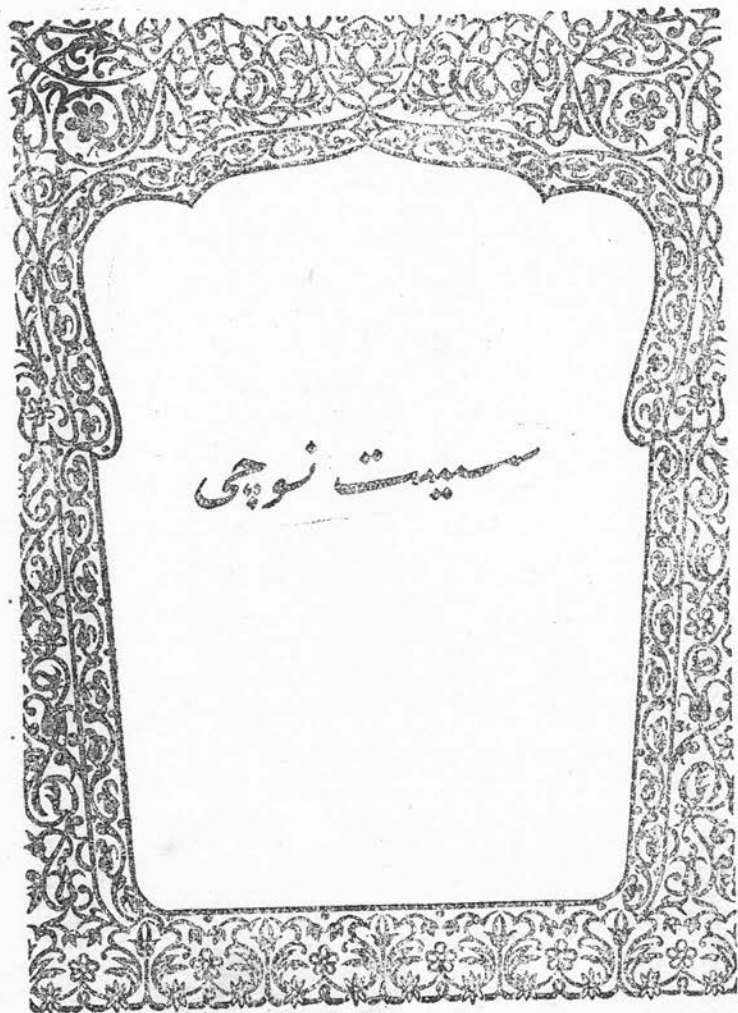 سیت نوچی